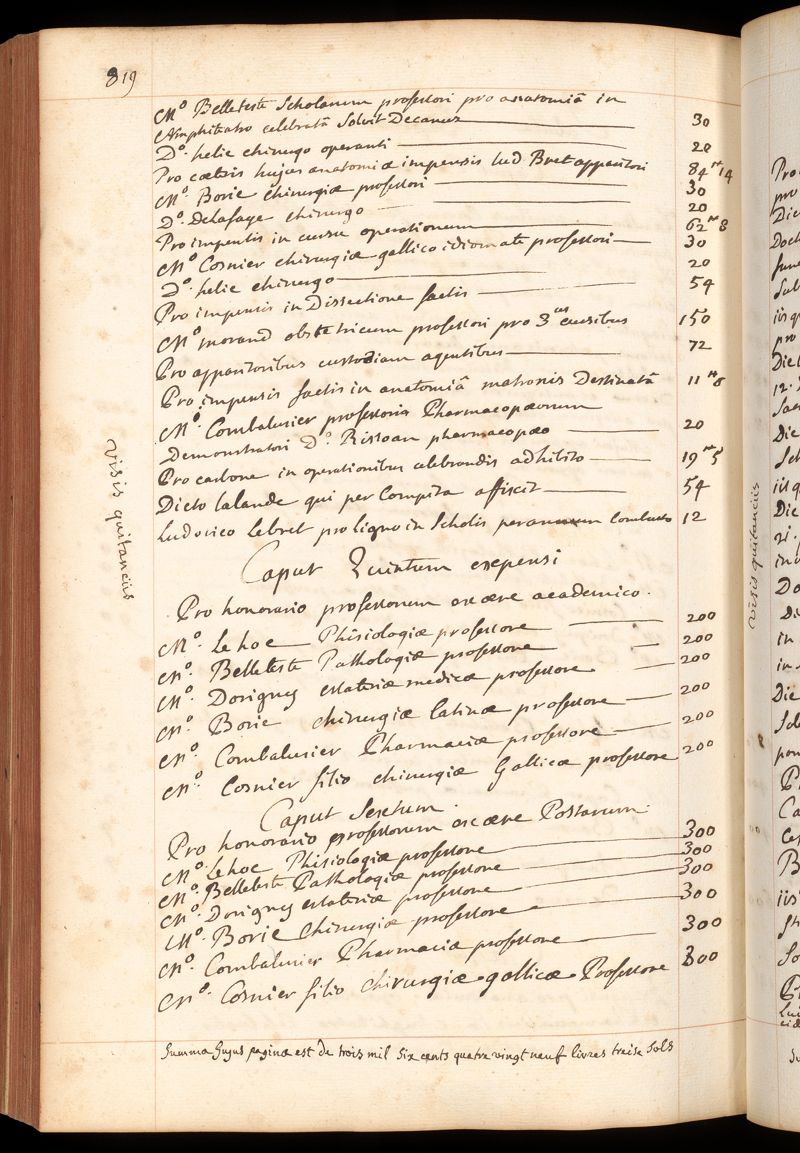 819
M.º Belleteste Scholarum professori pro anatomiâ in
Amphiteatro celebratâ Solvit Decanus 30
D.º helie chirurgo operanti 20
Pro cæteris hujus anatomiæ impensis lud Bret apparitori 84 ʰ 14
M.º Borie chirurgiæ professori 30
D.º Delafaye chirurgo 20
Pro impensis in cursu operationum 62 ʰ 8
M.º Cosnier chirurgiæ gallico idiomate professori 30
D.º helie chirurgo 20
Pro impensis in Dissectione factis 54
M.º morand obstetricum professori pro 3.bus cursibus 150
Pro apparitoribus custodiam agentibus 72
Pro impensis factis in anatomiâ matronis Destinatâ 11 ʰ 8
M.º Combalusier professoris Pharmacopæorum
Demonstratori D.º Rissoan pharmacopæo 20
Pro carbone in operationibus celebrandis adhibito 19 ʰ 5
Dicto Lalande qui per Compita affixit 54
Ludovico Lebret pro ligno in Scholis per annum Combusto 12
Visis quitanciis
Caput Quintum expensi
Pro honorario professorum ex ære academico.
M.º Le hoc Phisiologiæ professore 200
M.º Belleteste Pathologiæ professore 200
M.º Dorigny Materiæ medicæ professore 200
M.º Borie chirurgiæ latinæ professore 200
M.º Combalusier Pharmaciæ professore 200
M.º Cosnier filio chirurgiæ Gallicæ professore 200
Caput Sextum.
Pro honorario professorum ex ære Postarum.
M.º Le hoc Phisiologiæ professore 300
M.º Belleteste Pathologiæ professore 300
M.º Dorigny Materiæ professore 300
M.º Borie Chirurgiæ professore 300
M.º Combalusier Pharmaciæ professore 300
M.º Cosnier filio chirurgiæ gallicæ Professore 300
Summa hujus paginæ est de trois mil Six cents quatre vingt neuf livres treise Sols
visis quitanciis